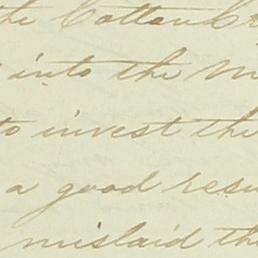 the Cotton
into the
to invest the
a good
mislaid the